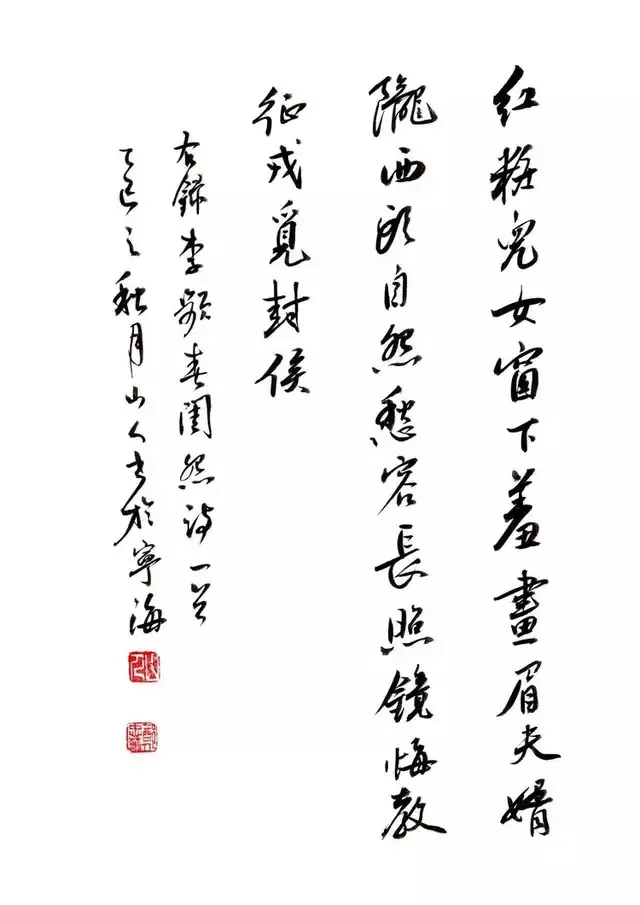 红粧兒女窗下羞畫眉夫婿
隴西頭自怨愁容長照鏡悔教
征戍覓封侯
右錄李頻春閨怨詩一首
乙巳之秋月山人书於寧海